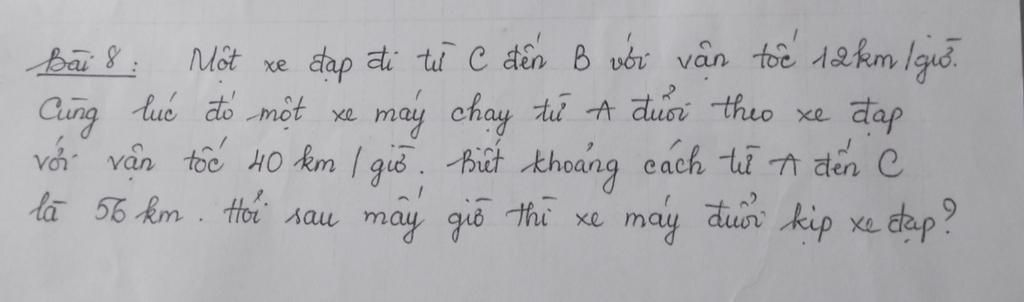 Bài 8: Một xe đạp đi từ C đến B với vận tốc 12km/giờ.
Cùng lúc đó một xe máy chạy từ A đuổi theo xe đạp
với vận tốc 40 km/giờ. Biết khoảng cách từ A đến C
là 56 km. Hỏi sau mấy giờ thì xe máy đuổi kịp xe đạp?